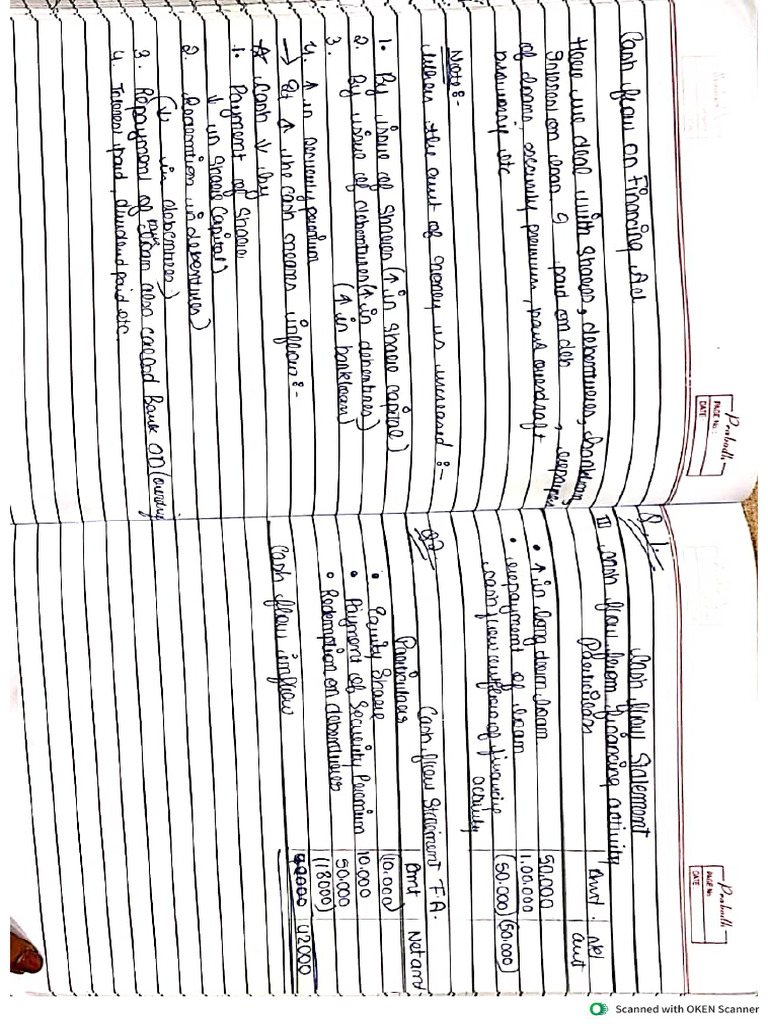 Prabodh
PAGE No:
DATE
Cash flow on Financing Act
Here we deal with shares, debentures, bankloan
Interest on loan, paid on deb
of loans, security premium, bank overdraft
etc
Note:-
When the amt of money is increased :-
1. By issue of Shares (↑ in Share capital)
2. By issue of debentures (↑ in debentures)
3. (↑ in bankloan)
4. ↑ in security premium
→ If ↑ the cash means inflow:-
☆ Cash ↓ by
1. Payment of Share
↓ in Share Capital)
2. in debentures)
(↓ in debentures)
3. Repayment of loan also called Bank OD
4. Interest paid, dividend paid etc.
Prabodh
PAGE No:
DATE
Q.1.
Cash flow Statement
III cash flow from financing activity
Particulars Amt. Net amt
• ↑ in long term loan 50.000
• repayment of loan 1.00.000
cash flow outflow of financing activity (50.000) (50.000)
Q2
Cash flow Statement F.A.
Particulars Amt Net amt
• Equity Share (10.000)
10.000
• Payment of Security Premium 50.000
• Redemption on debentures (18000)
Cash flow inflow 42000